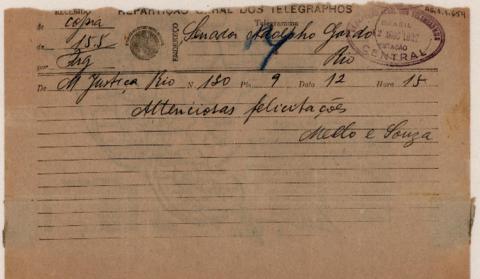 RECEBIDO
REPARTIÇÃO GERAL DOS TELEGRAPHOS
de copa
Telegramma
ENDEREÇO
Senador Adolpho Gordo
Rio
BRASIL
ESTAÇÃO
CENTRAL
de 15.5
por
De M Justiça Rio N. 180 Pls. 9 Data 12 Hora 15
Attenciosas felicitações
Mello e Souza